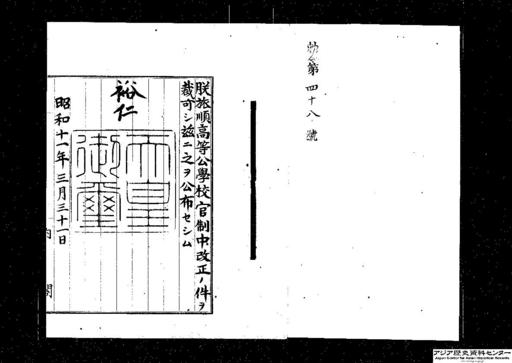 勅令第四十八號
朕旅順高等公學校官制中改正ノ件ヲ
裁可シ茲ニ之ヲ公布セシム
裕仁
天皇御璽
昭和十一年三月三十一日
内閣
アジア歴史資料センター
Japan Center for Asian Historical Records